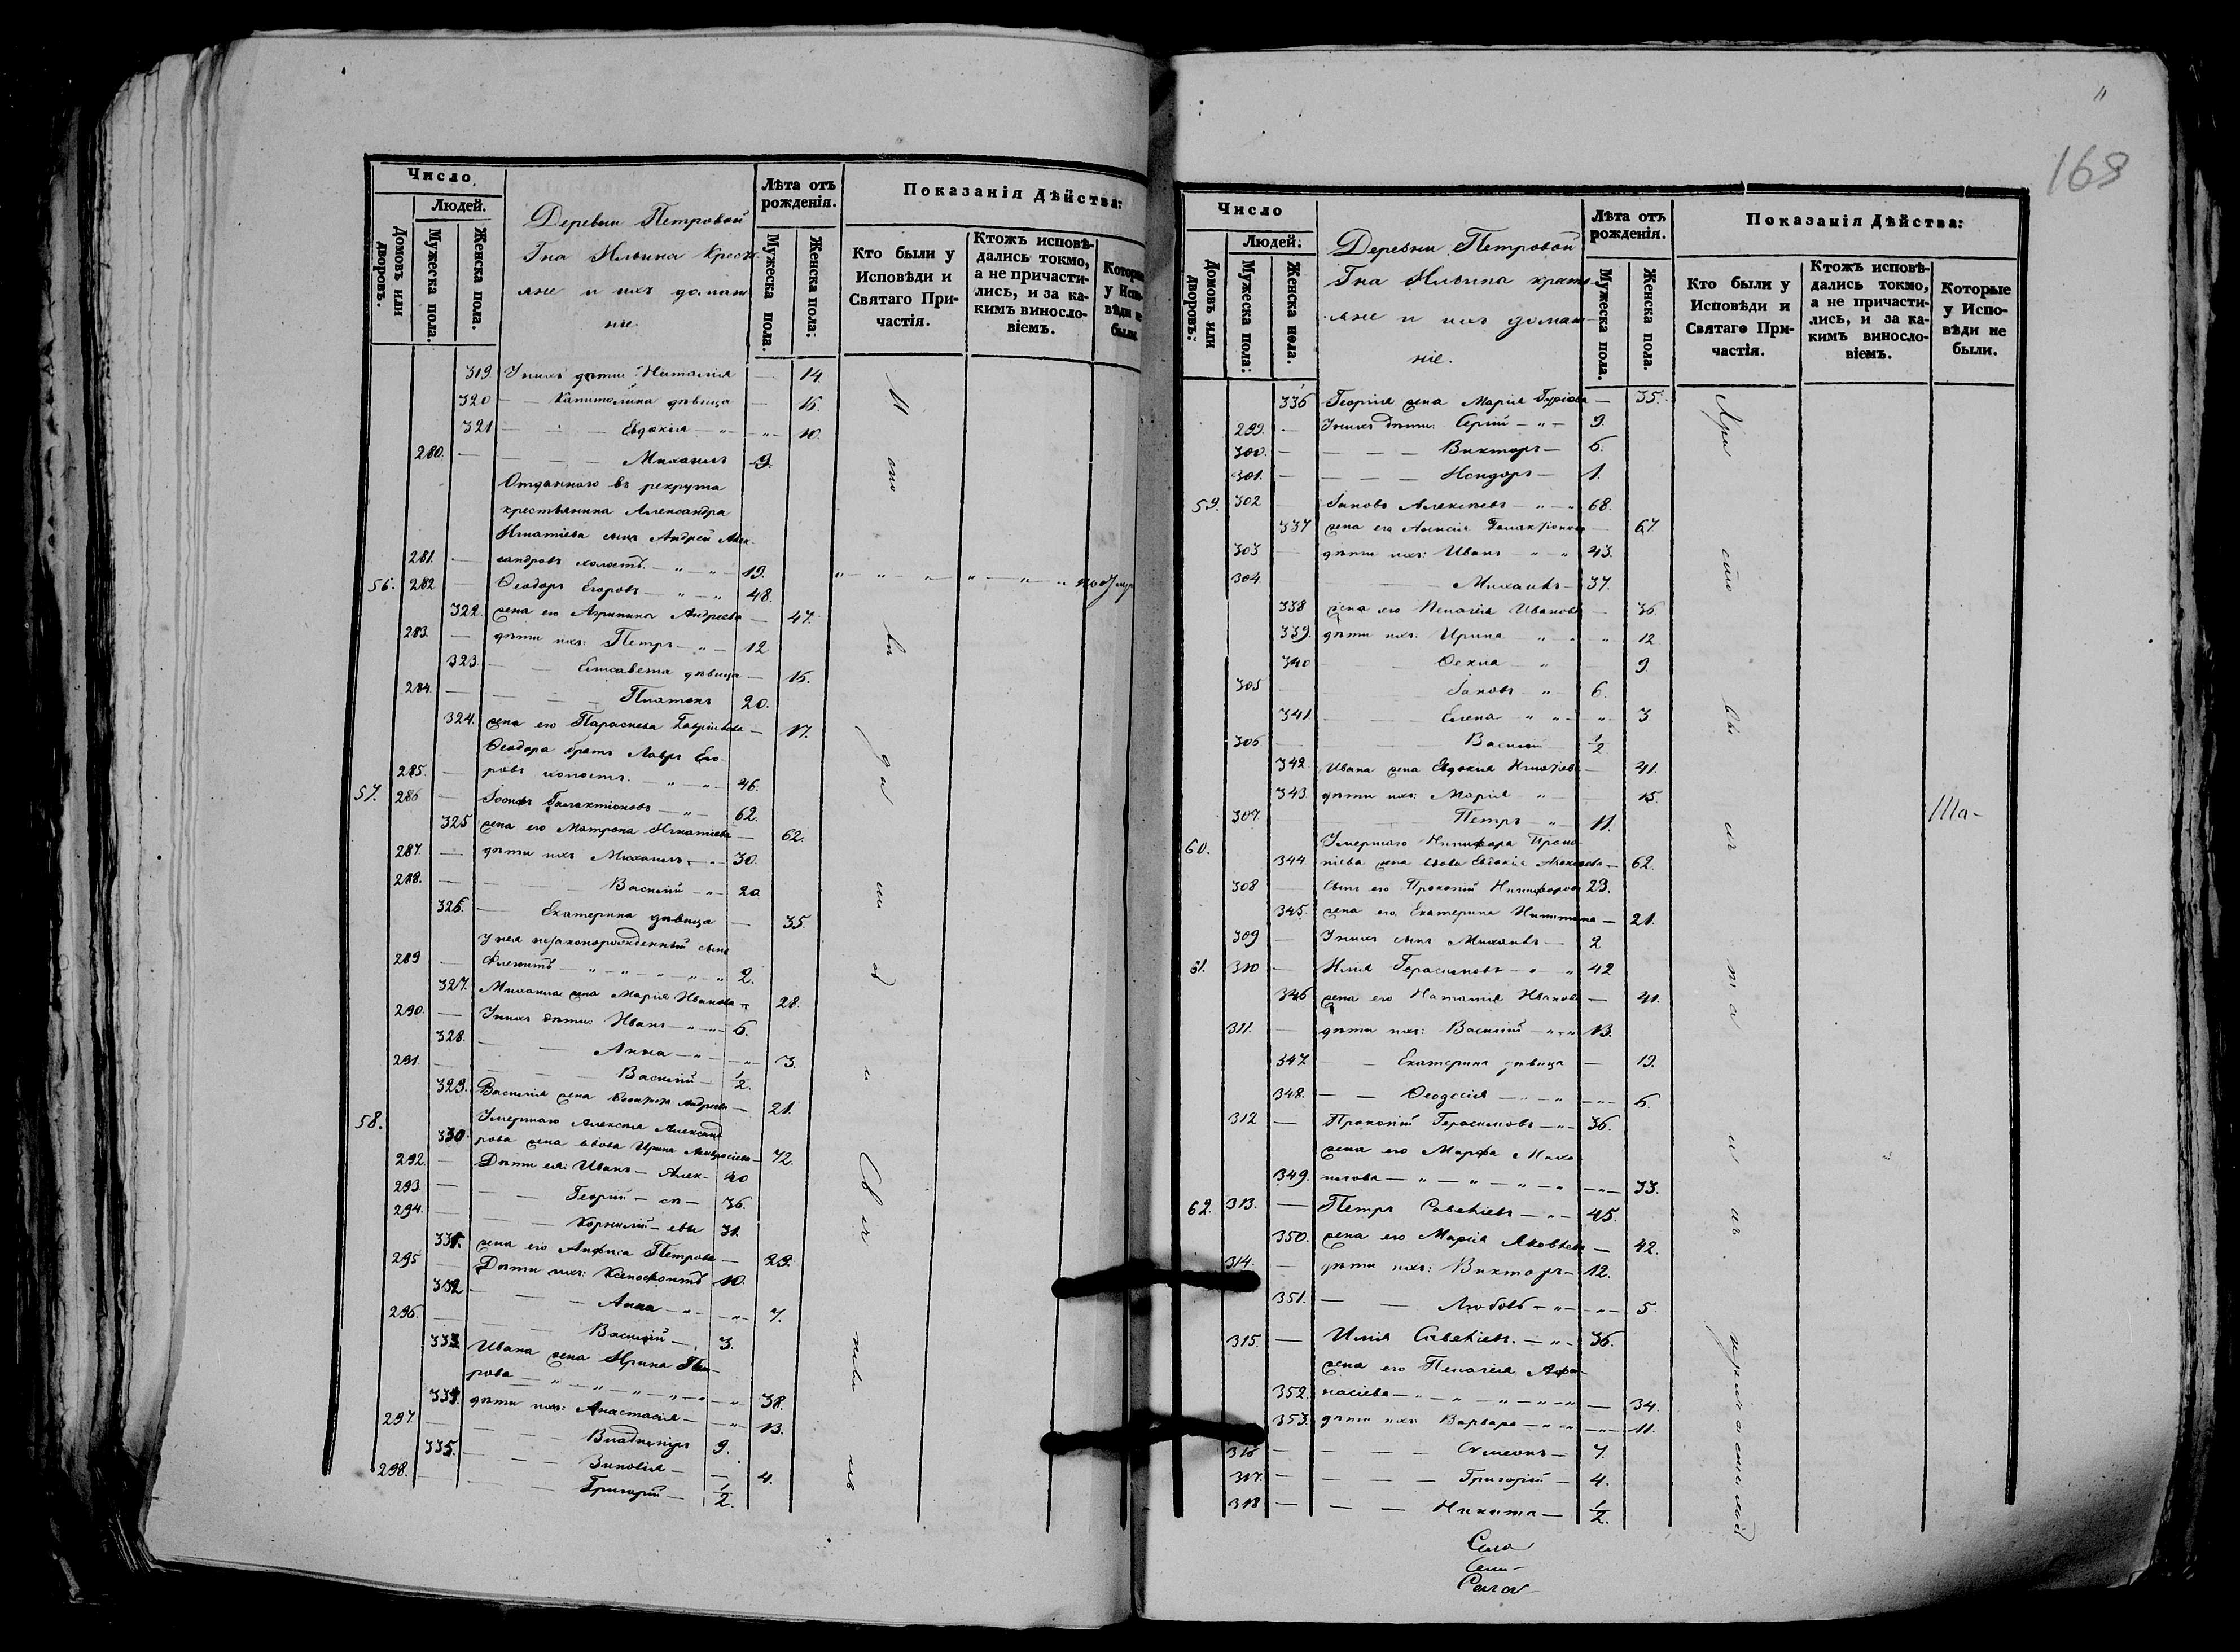 Число
Людей.
Домовъ или дворовъ.
Мужеска пола.
Женска пола.
Деревни Петровой
Гна Ильина кресть-
яне и ихъ домаш-
ніе.
Лѣта отъ рожденія.
Мужеска пола.
Женска пола:
Показанія Дѣйства:
Кто были у Исповѣди и Святаго При-частія.
Ктожъ исповѣ-дались токмо, а не причасти-лись, и за ка-кимъ винносло-віемъ.
Которые у Испо-вѣди не были.
319 У нихъ дѣти: Наталія — 14.
320 — — Капитолина дѣвица — 16.
321 — — Евдокія — „ — „ — 10.
280. — — — Михаилъ — 9.
Отданного въ рекрута
крестьянина Александра
Игнатіева сынъ Андрей Алек-
281. — сандровъ холостъ — „ — „ — 19.
56. 282 — Ѳеодоръ Егоровъ — „ — „ 48.
322. жена его Агрипина Андреева — 47.
283. — дѣти ихъ: Петръ — „ — 12
323. — — Елисавета дѣвица — 15.
284. — — — Платонъ 20.
324. жена его Параскева Гаврілова — 17.
Ѳеодора братъ Лавръ Его-
285. — ровъ холостъ. — „ — „ 46.
57. 286 — Іосифъ Галактіоновъ — „ 62.
325 жена его Матрона Игнатіева — 62.
287. — дѣти ихъ Михаилъ — „ — 30.
288. — — — Василій — „ — 20
326. — Екатерина дѣвица — 35.
У нея незаконорожденный сынъ
289 — — „ — „ — „ — „ 2.
327. Михаила жена Марія Иванова — 28.
290. — У нихъ дѣти: Иванъ — „ — 6.
328. — — Анна — „ — „ — 3.
291. — — — Василій — 1/2.
329. Василія жена Андреева — 21.
58. Умершаго Алексѣя Александ-
330. рова жена вдова Ирина Амвросіева — 72.
292. — Дѣти ея: Иванъ — Алек- 40
293. — — — Георгій — сѣ — 36.
294. — — — Корнилій — евы 31.
331. жена его Анфиса Петрова — 29.
295 — Дѣти ихъ: Ксенофонтъ 10.
332 — — — Анна — „ — „ — 7.
296. — — — Василій — 3.
333 Ивана жена Ирина Пет-
рова — „ — „ — „ — „ — 38.
334. дѣти ихъ: Анастасія — „ — 13.
297. — — — Владиміръ 9.
335. — — — Зиновія — — 4.
298. — — — Григорій — 1/2.
168
Число
Людей.
Домовъ или дворовъ:
Мужеска пола:
Женска пола.
Деревни Петровой
Гна Ильина кресть-
яне и ихъ домаш-
ніе.
Лѣта отъ рожденія.
Мужеска пола.
Женска пола.
Показанія Дѣйства:
Кто были у Исповѣди и Святаго При-частія.
Ктожъ исповѣ-дались токмо, а не причасти-лись, и за ка-кимъ винносло-віемъ.
Которые у Испо-вѣди не были.
336 Георгія жена Марія Гурьева — 35.
299. — У нихъ дѣти: Сергій — „ — 9.
300. — — — — Викторъ — 6.
301. — — — — Исидоръ — 1.
59. 302 Іаковъ Алексѣевъ — „ — „ 68.
337 жена его Анисія Галактіонова — 67.
303 — дѣти ихъ: Иванъ — „ — „ 43.
304. — Михаилъ — 37.
338 жена его Пелагія Иванова — 36.
339. дѣти ихъ: Ирина „ „ „ 12
340 — Ѳекла — „ — 9.
305 — Іаковъ — „ 6.
341. — Елена — „ „ — „ — 3
306 — — Василій 1/2
342. Ивана жена Евдокія Игнатіева — 41.
343. дѣти ихъ: Марія „ — 15.
307. — Петръ — „ — 11.
60. Умершаго Никифора Проко-
344. піева жена вдова Евдокія Алексѣева — 62.
308 — Сынъ его Прокопій Никифоровъ 23.
345. жена его Екатерина Никитина — 21.
309 — У нихъ сынъ Михаилъ — 2
61. 310 — Илія Герасимовъ — „ — „ 42
346 жена его Наталія Иванова — 41.
311. — дѣти ихъ: Василій — „ — „ 13.
347 — — Екатерина дѣвица — 19.
348. — — Ѳеодосія — „ — „ — 6.
312 — Прокопій Герасимовъ — „ — 36.
жена его Марфа Миха-
349. илова — „ — „ — „ — „ — 33.
62. 313. — Петръ Савельевъ — „ — 45.
350. жена его Марія Яковлева — 42.
314. — дѣти ихъ: Викторъ — 12.
351. — — Любовь — „ — „ — 5.
315. — Илія Савельевъ. — „ — 36.
жена его Пелагія Афа-
352. насіева — „ — „ — „ — „ — 34.
353. дѣти ихъ: Варвара — „ — „ — 11.
316 — — — — Симеонъ — 7.
317. — — — — Григорій — 4.
318 — — — Никита — 1/2.